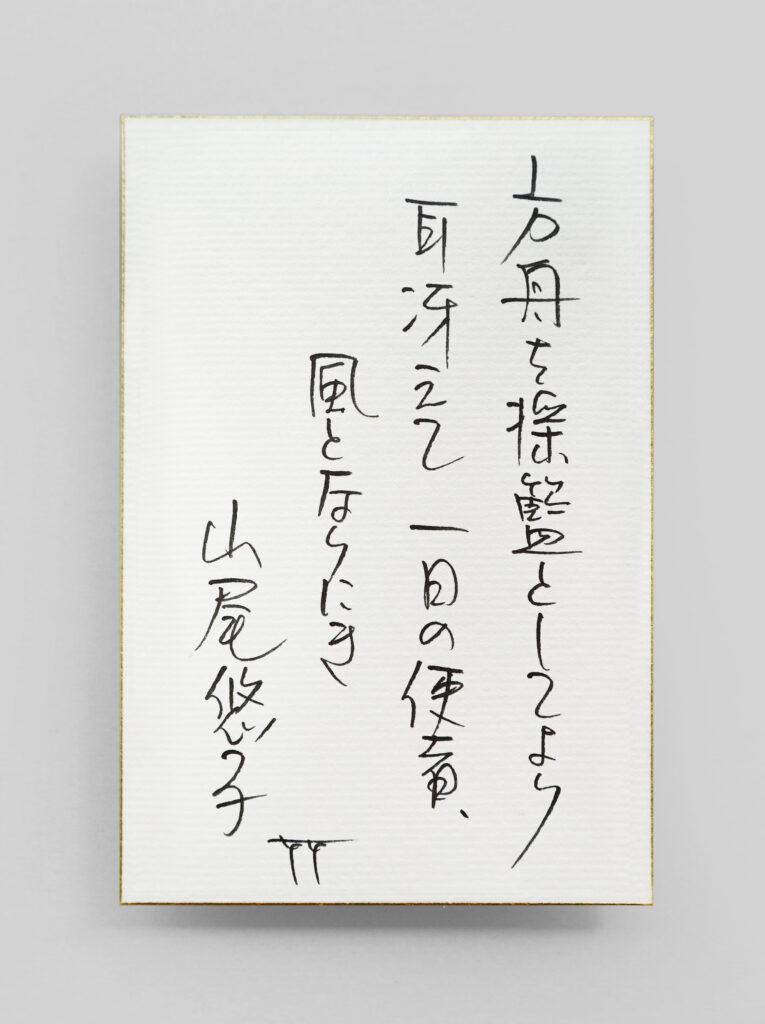 方舟を揺籃としてより
耳冴えて 一日の便
風となりにき
山尾悠子